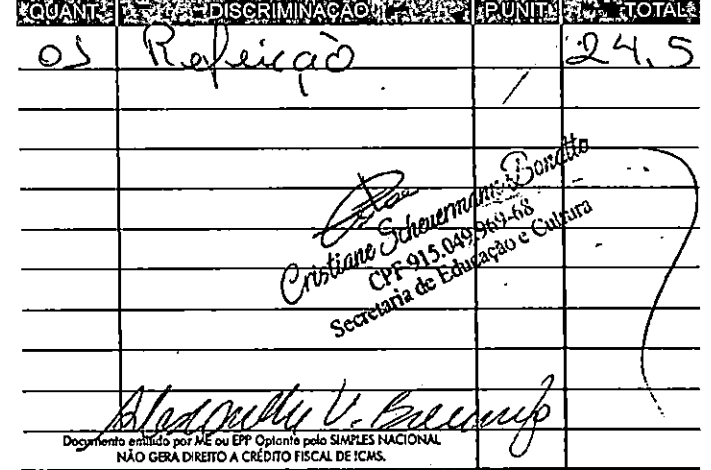 QUANT. DISCRIMINAÇÃO P.UNIT. TOTAL
01 Refeição 24,5
Cristiane Scheuermann Bonatto
CPF 915.049.969-68
Secretaria de Educação e Cultura
Documento emitido por ME ou EPP Optante pelo SIMPLES NACIONAL
NÃO GERA DIREITO A CRÉDITO FISCAL DE ICMS.